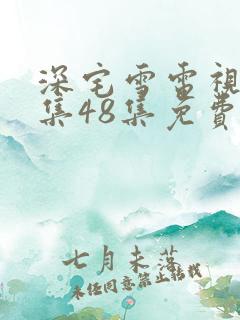 深宅雪電視
集48集免費
七月未落
未经同意禁止转载